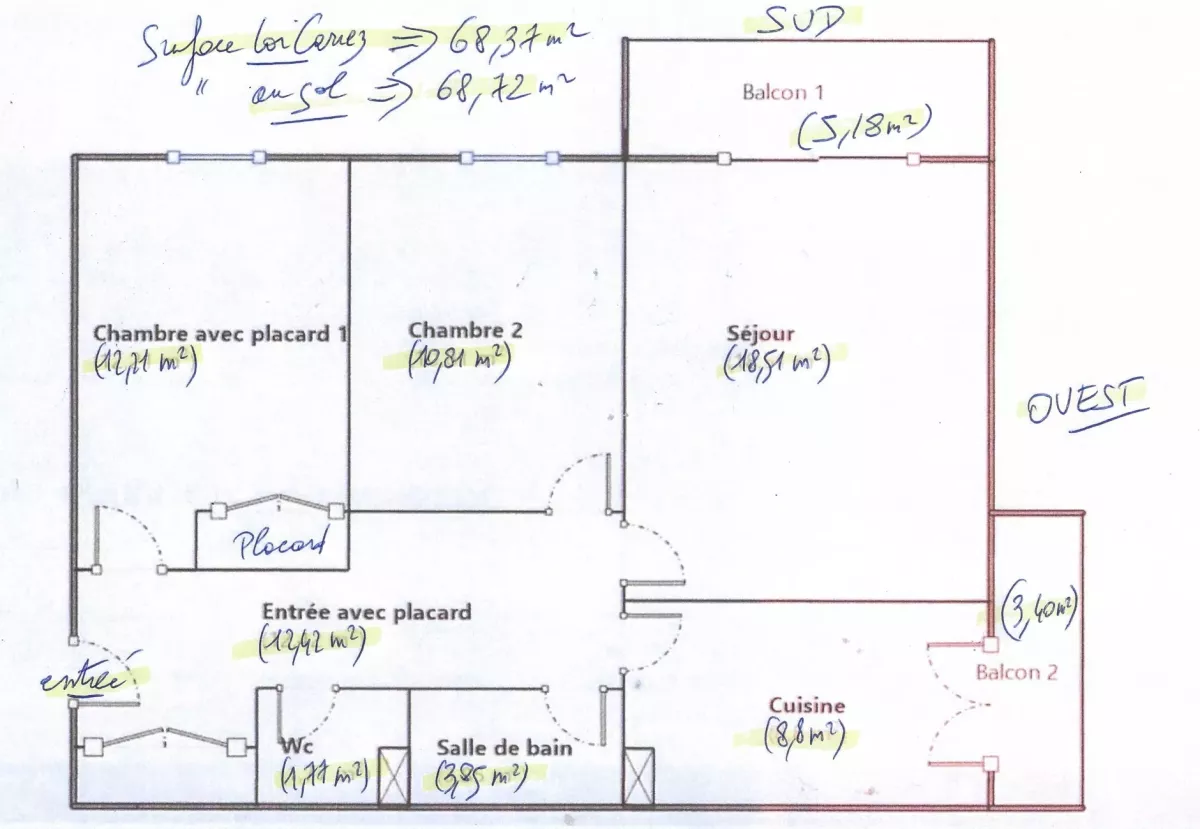 SUD
Surface Loi Carrez => 68,37 m²
" au sol => 68,72 m²
Balcon 1
(5,18 m²)
Chambre avec placard 1
(12,21 m²)
Chambre 2
(10,81 m²)
Séjour
(18,51 m²)
OUEST
Placard
Entrée avec placard
(12,42 m²)
(3,40 m²)
Balcon 2
entrée
Cuisine
(8,8 m²)
Wc
(1,77 m²)
Salle de bain
(3,85 m²)